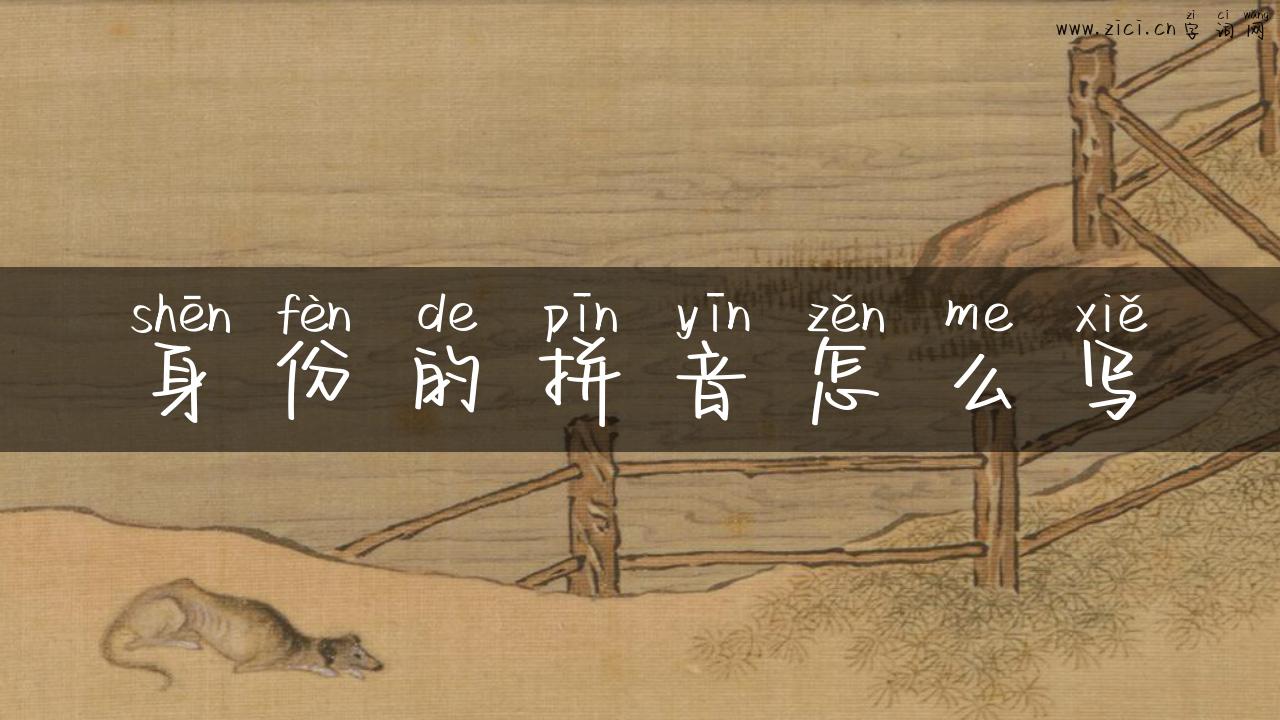 zi ci wang
www.zici.cn 字词网
shēn fèn de pīn yīn zěn me xiě
身份的拼音怎么写